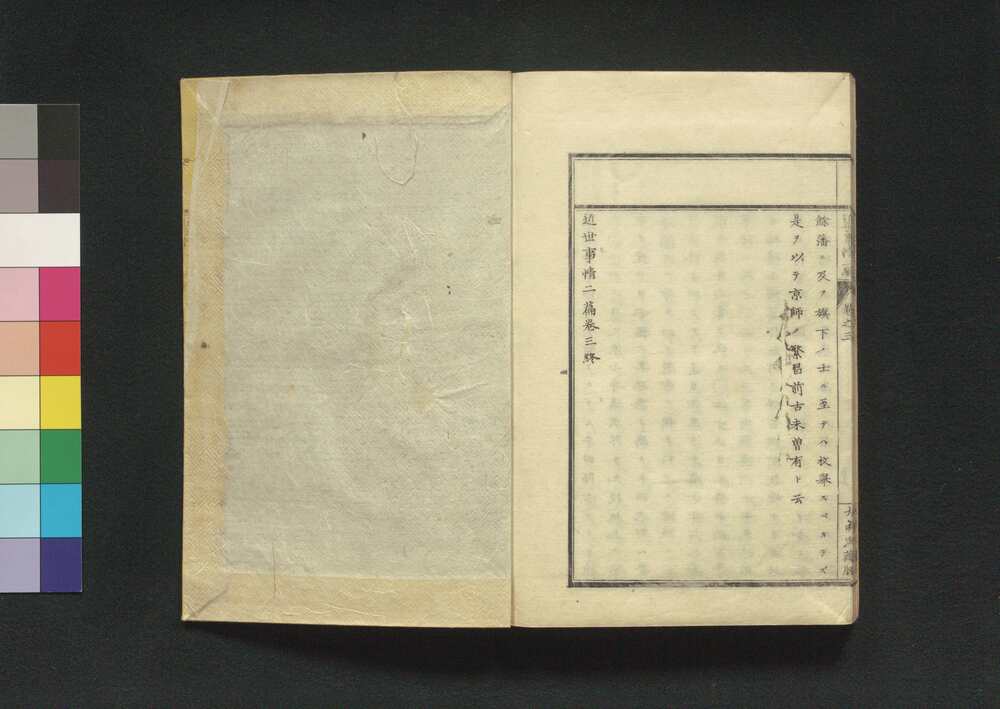 餘藩ニ及ヲ旗下ノ士ニ至テハ枚擧スベカラズ
是ヲ以テ京師ノ繁昌前古未曾有ト云
近世事情二篇卷三終
卷之三